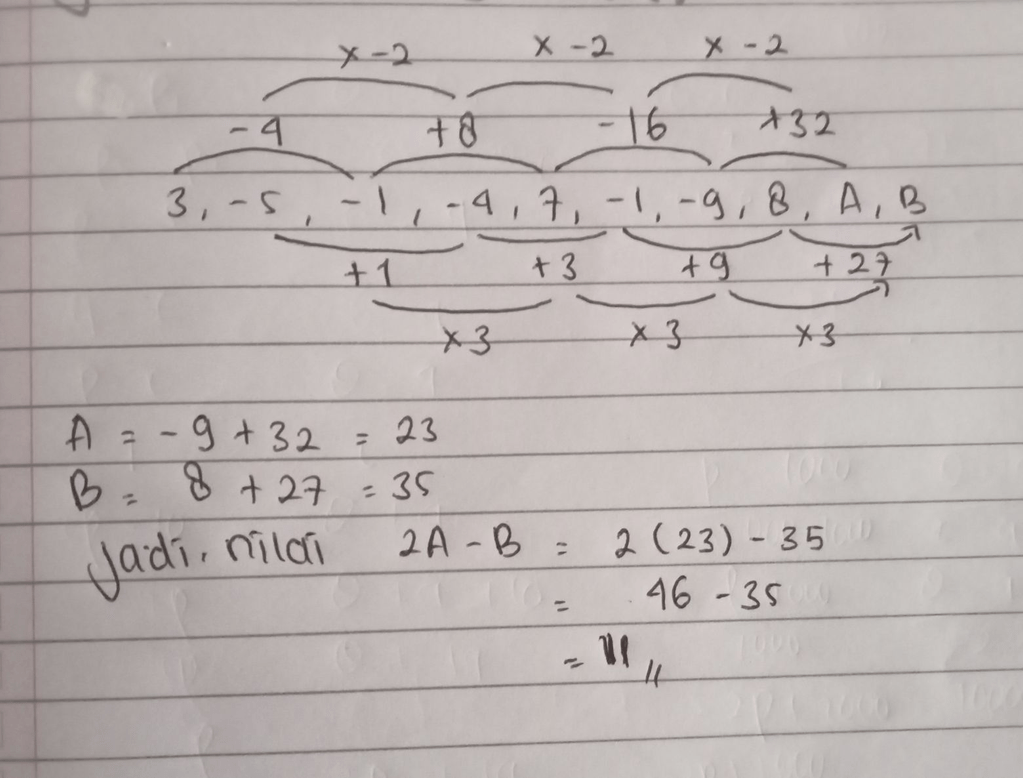 x -2 x -2 x -2
-4 +8 -16 +32
3, -5, -1, -4, 7, -1, -9, 8, A, B
+1 +3 +9 +27
x3 x3 x3
A = -9 + 32 = 23
B = 8 + 27 = 35
Jadi, nilai 2A - B = 2 (23) - 35
= 46 - 35
= 11 //